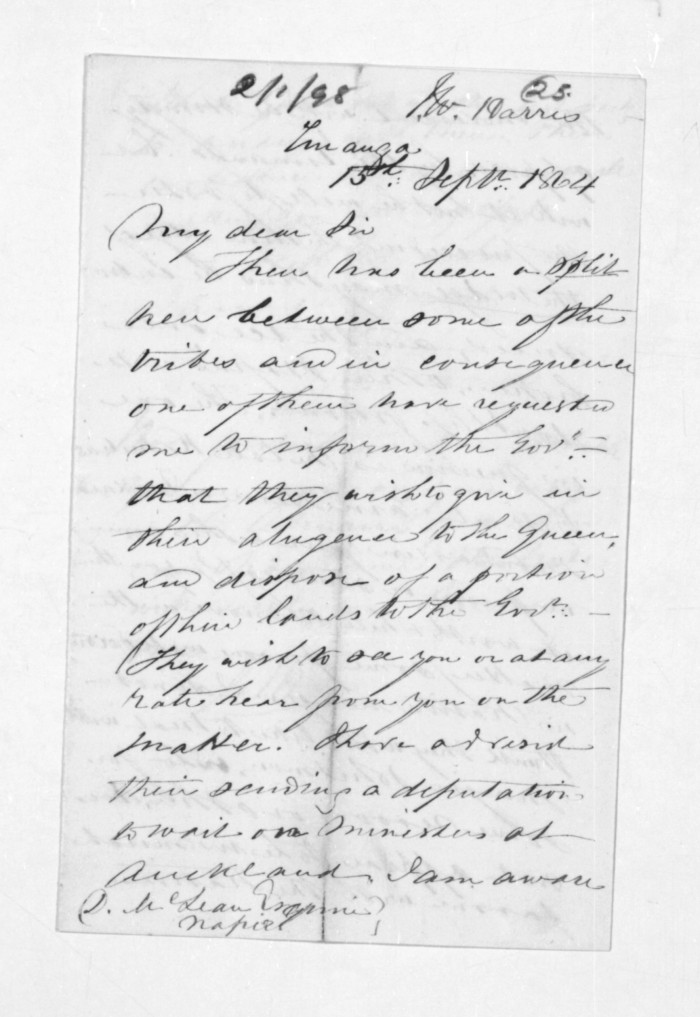 2/1/98
25.
J.W. Harris
Turanga
15th: Septr: 1864
My dear Sir
There has been a split
here between some of the
tribes and in consequence
one of them have requested
me to inform the Govt: —
that they wish to give in
their alegence to the Queen,
and dispose of a portion
of their lands to the Govt: —
They wish to see you or at any
rate hear from you on the
matter. I have advised
their sending a deputation
to wait on Ministers at
Auckland, I am aware
D. McLean Esquire
Napier